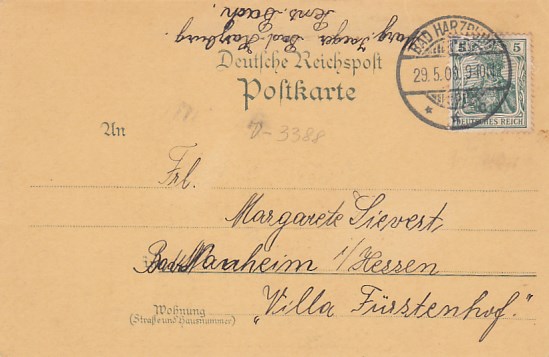 Marg. Jaeger Bad Harzburg
Pens. Bach.
Deutsche Reichspost
Postkarte
BAD HARZBURG
29.5.0
9-10
5
5
DEUTSCHES REICH
An
D-3388
Frl.
Margarete Sievert,
Bad Nauheim i/Hessen
Wohnung
(Straße und Hausnummer)
"Villa Fürstenhof."